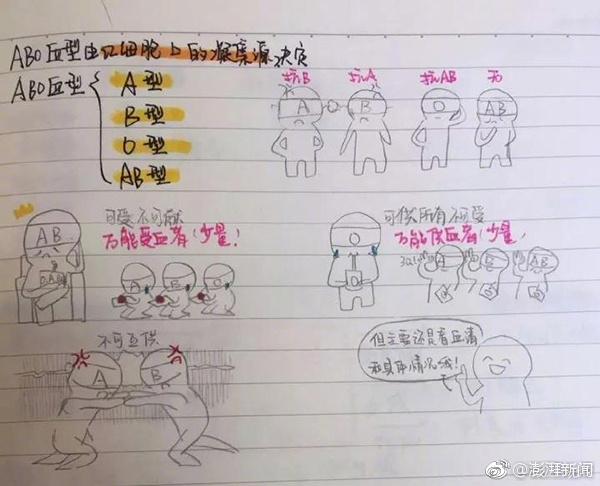 ABO血型由红细胞上的凝集源决定
ABO血型
A型
B型
O型
AB型
抗B 抗A 抗AB 无
A B O AB
AB
可受不可献
万能受血者(少量!
A B O
O
可供所有不可受
万能供血者(少量!
A B AB
不可互供
A B
但主要还是看血清
和具体情况哦!
@澎湃新闻